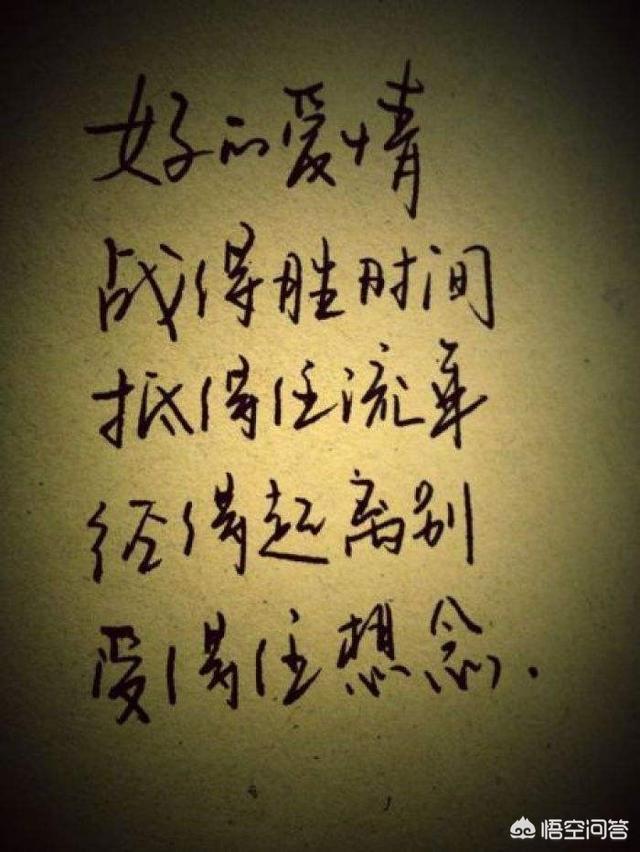 好的爱情
战得胜时间
抵得住流年
经得起离别
受得住想念.
悟空问答